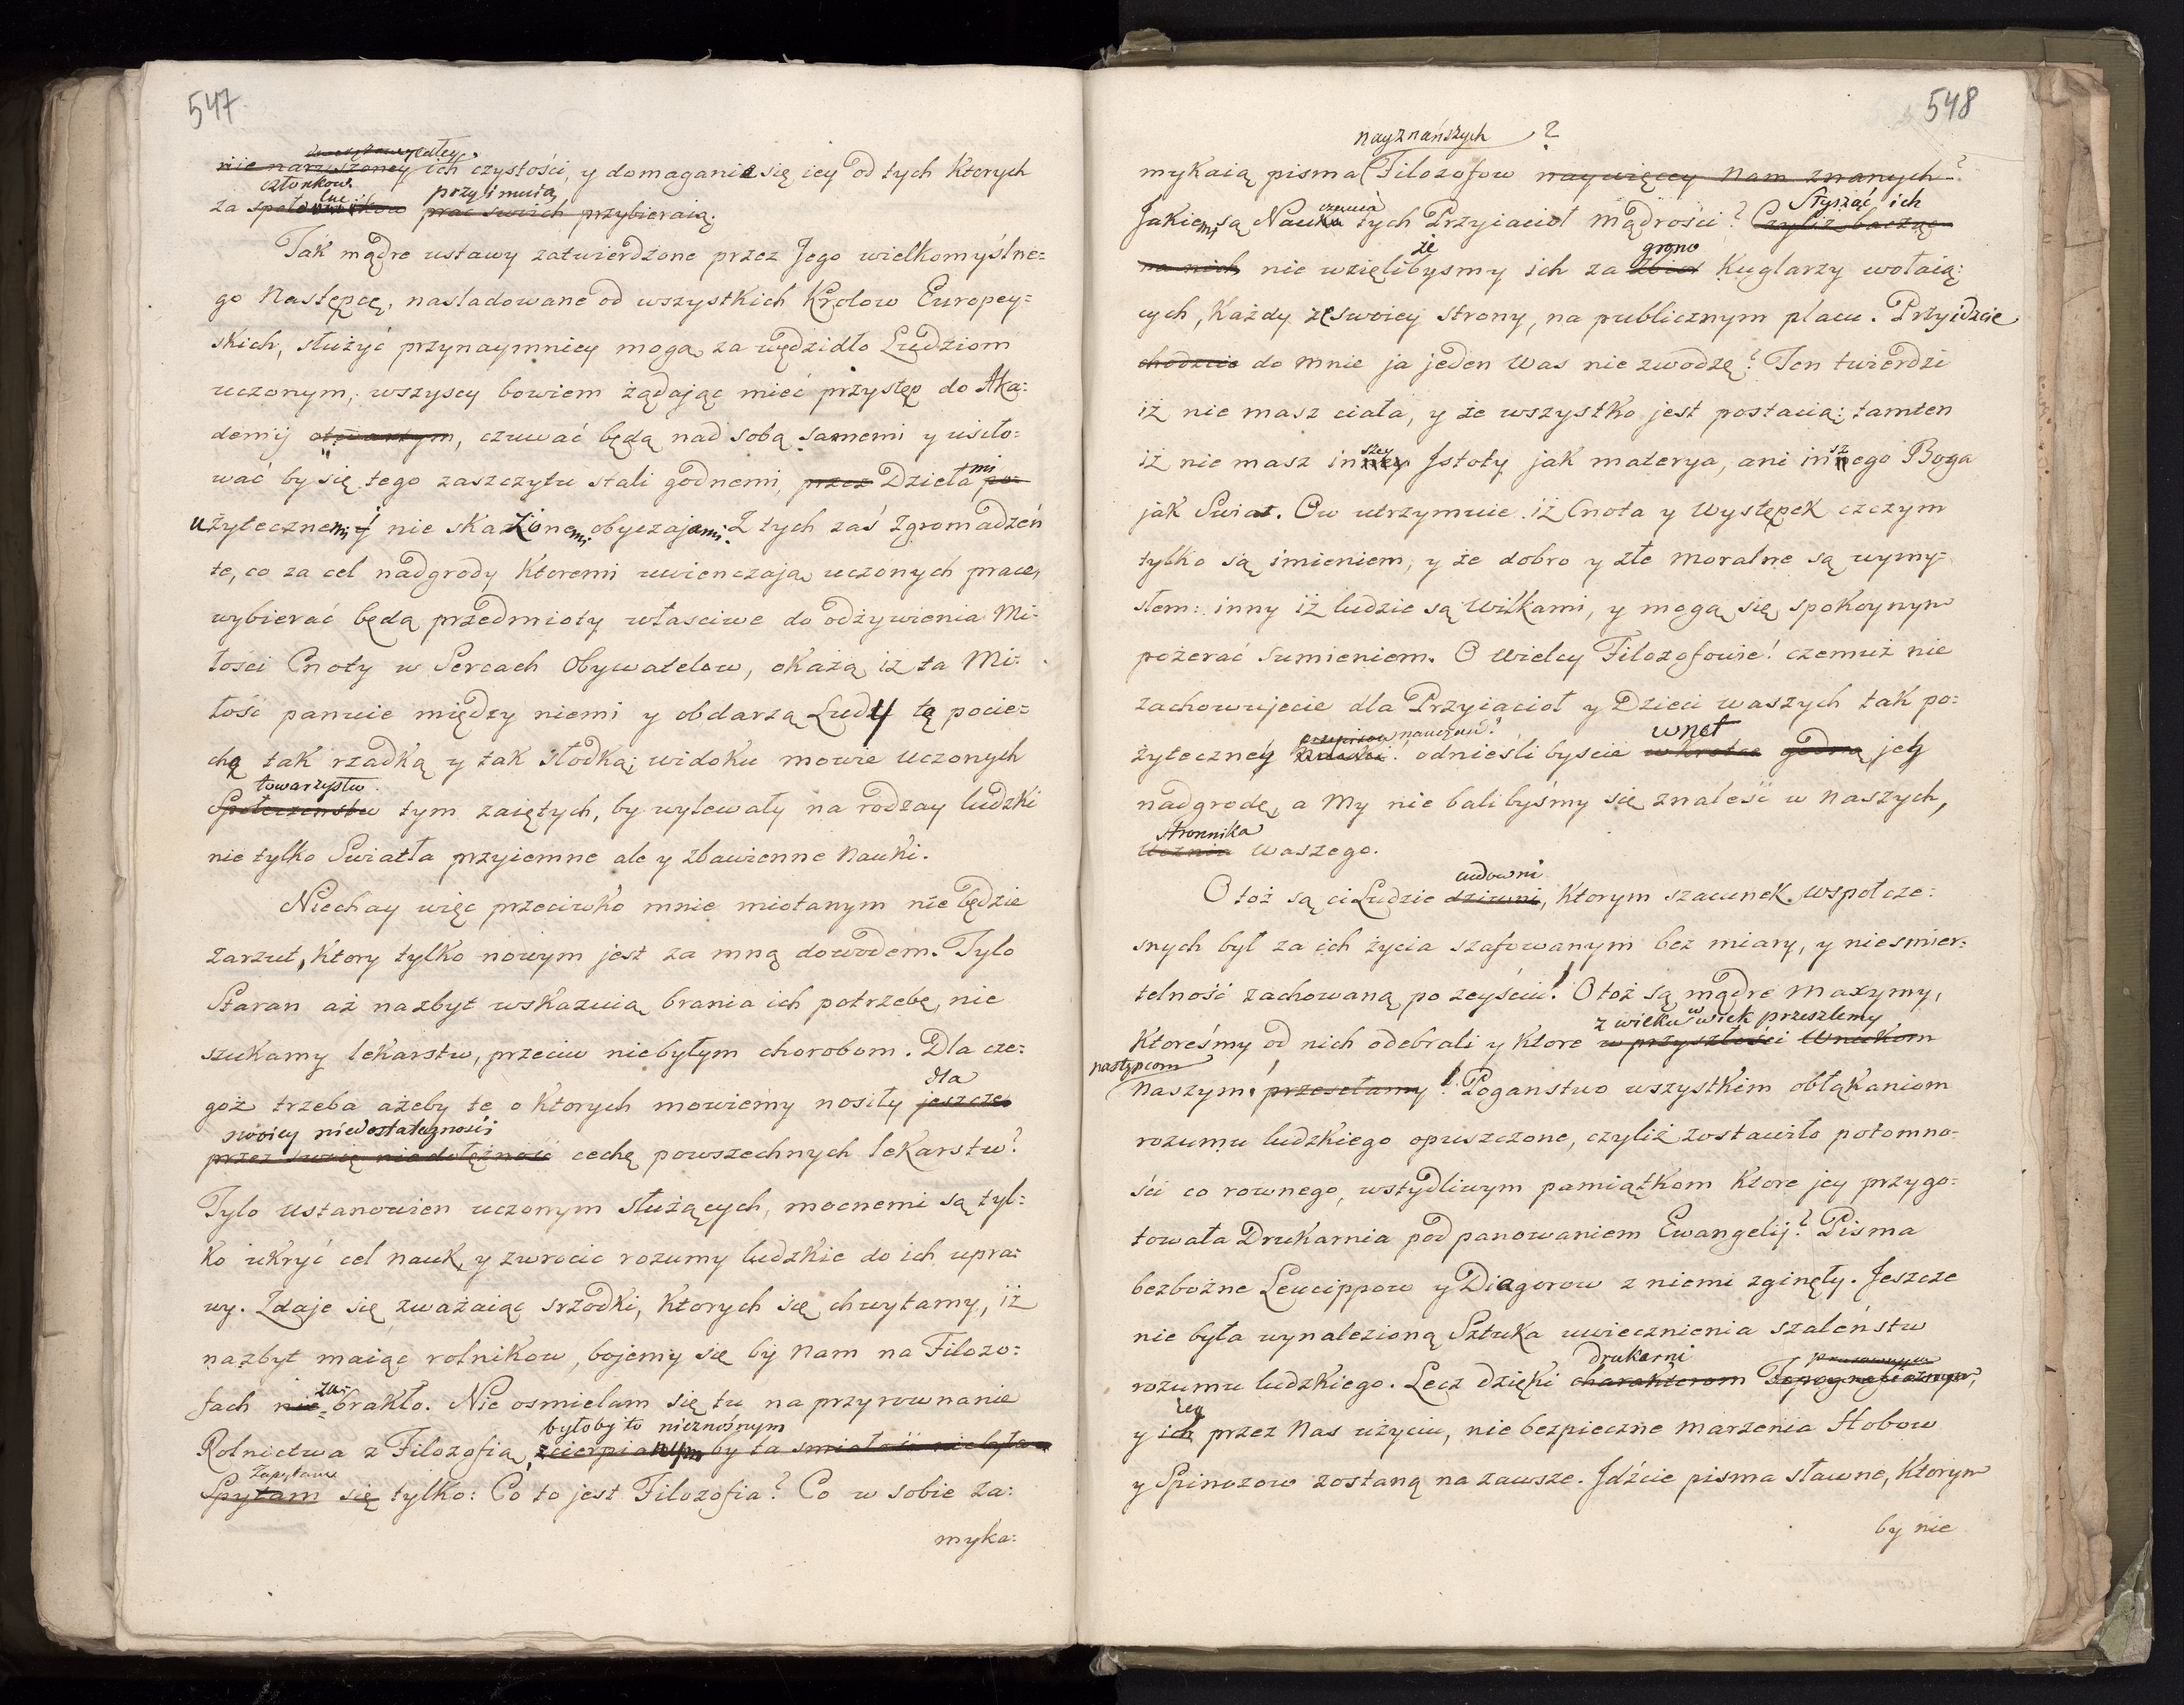 547.
całey
nie naruszoney ich czystości, y domaganie się icy od tych Ktorych
członkow przyimuią
za prac swoich przybieraią.
Tak mądre ustawy zatwierdzone przez Jego wielkomyślne=
go Następcę, nasladowane od wszystkich Krolow Europey=
skich, służyć przynaymniey mogą za wędzidło Ludziom
uczonym, wszyscy bowiem żądając mieć przystęp do Aka:
demij otwartym, czuwać będą nad sobą samemi y usiło:
wać by się tego zaszczytu stali godnemi, przez Dziełami po=
użytecznemi y nie skażonemi obyczajami. Z tych zaś Zgromadzeń
te, co za cel nadgrody Ktoremi uwienczają uczonych prace,
wybierać będą przedmioty własciwe do odżywienia Mi=
łosci Cnoty w Sercach Obywatelow, okażą iz ta Mi=
łość panuie między niemi y obdarzą Ludy tę pocie=
chą tak rzadką y tak słodką; widoku mowie uczonych
towarzystw.
Społeczenstw tym zaiętych, by wylewały na rodzay ludzki
nie tylko Swiatła przyiemne ale y zbawienne Nauki.
Niechay więc przeciwko mnie miotanym nie będzie
zarzut, Ktory tylko nowym jest za mną dowodem. Tylo
Staran aż nazbyt wskazuią brania ich potrzebę, nie
szukamy lekarstw, przeciw niebyłym chorobom. Dla cze=
dla
goż trzeba ażeby te o Ktorych mowiemy nosiły jeszcze
swoiey niedostateczności
przez swoię niedołężność cechę powszechnych lekarstw?
Tylo ustanowien uczonym służących, mocnemi są tyl=
ko ukryć cel Nauk, y zwrocic rozumy ludzkie do ich upra=
wy. Zdaje się zważaiąc srzodki, Ktorych się chwytamy, iż
nazbyt maiąc rolnikow, bojemy się by Nam na Filozo=
za=
fach nie=brakło. Nie osmielam się tu na przyrownanie
byłoby to nieznośnym
Rolnictwa z Filozofią, zcierpianym by ta smiałość nie była
Zapytam
Spytam się tylko: Co to jest Filozofia? Co w sobie za=
myka:
548
nayznańszych ?
mykaią pisma Filozofow naywięcey Nam znanych?
czenia Słysząć ich
Jakiemi są Nauka tych Przyiacioł mądrości? Czyliż bacząc
że grono
na nich nie wzięlibysmy ich za zbior Kuglarzy wołaią=
cych, Każdy ze swoiey strony, na publicznym placu. Przyidzcie
chodzcie do mnie ja jeden Was nie zwodzę? Ten twierdzi
iż nie masz ciała, y że wszystko jest postacią: tamten
szey sz
iż nie masz inney Istoty jak materya, ani innego Boga
jak Swiat. Ow utrzymuie iż Cnota y Występek czczym
tylko są imieniem, y że dobro y złe moralne są wymy=
słem: inny iż ludzie są Wilkami, y mogą się spokoynym
pożerać sumieniem. O Wielcy Filozofowie! czemuż nie
zachowujecie dla Przyiacioł y Dzieci waszych tak po=
przepisow nauczań? wnet
żyteczney Nauki! odnieśli byscie wkrotce godną jey
nadgrodę, a My nie balibyśmy się znaleść w Naszych,
stronnika
Ucznia waszego.
cudowni
Otoż są ci Ludzie dziwni, Ktorym szacunek wspołcze=
snych był za ich życia szafowanym bez miary, y niesmier=
telność zachowaną po zeyściu! Otoż są mądre Maxymy,
z wieku w wiek przeszlemy
Ktoreśmy od nich odebrali y Ktore w przyszłości Wnukom
następcom
Naszym przesełamy! Poganstwo wszystkim obłąkaniom
rozumu ludzkiego opuszczone, czyliż zostawiło potomno=
ści co rownego, wstydliwym pamiątkom Ktore jey przygo=
towała Drukarnia pod panowaniem Ewangelij? Pisma
bezbożne Leucippow y Diagorow z niemi zginęły. Jeszcze
nie była wynalezioną Sztuka uwiecznienia szaleństw
drukarni
rozumu ludzkiego. Lecz dzięki charakterom Topograficznym,
iey
y ich przez Nas użyciu, nie bezpieczne marzenia Hobow
y Spinozow zostaną na zawsze. Idźcie pisma sławne, Ktorym
by nie